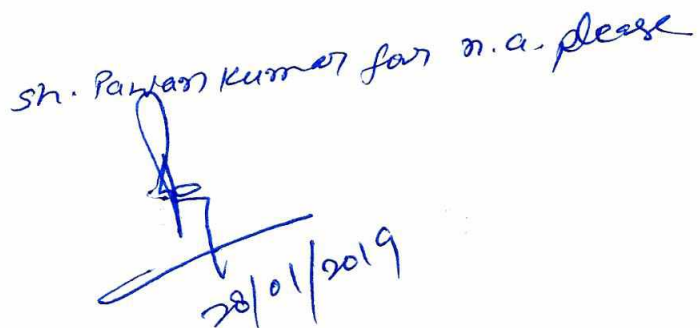 Sh. Pawan Kumar for n.a. please
28/01/2019